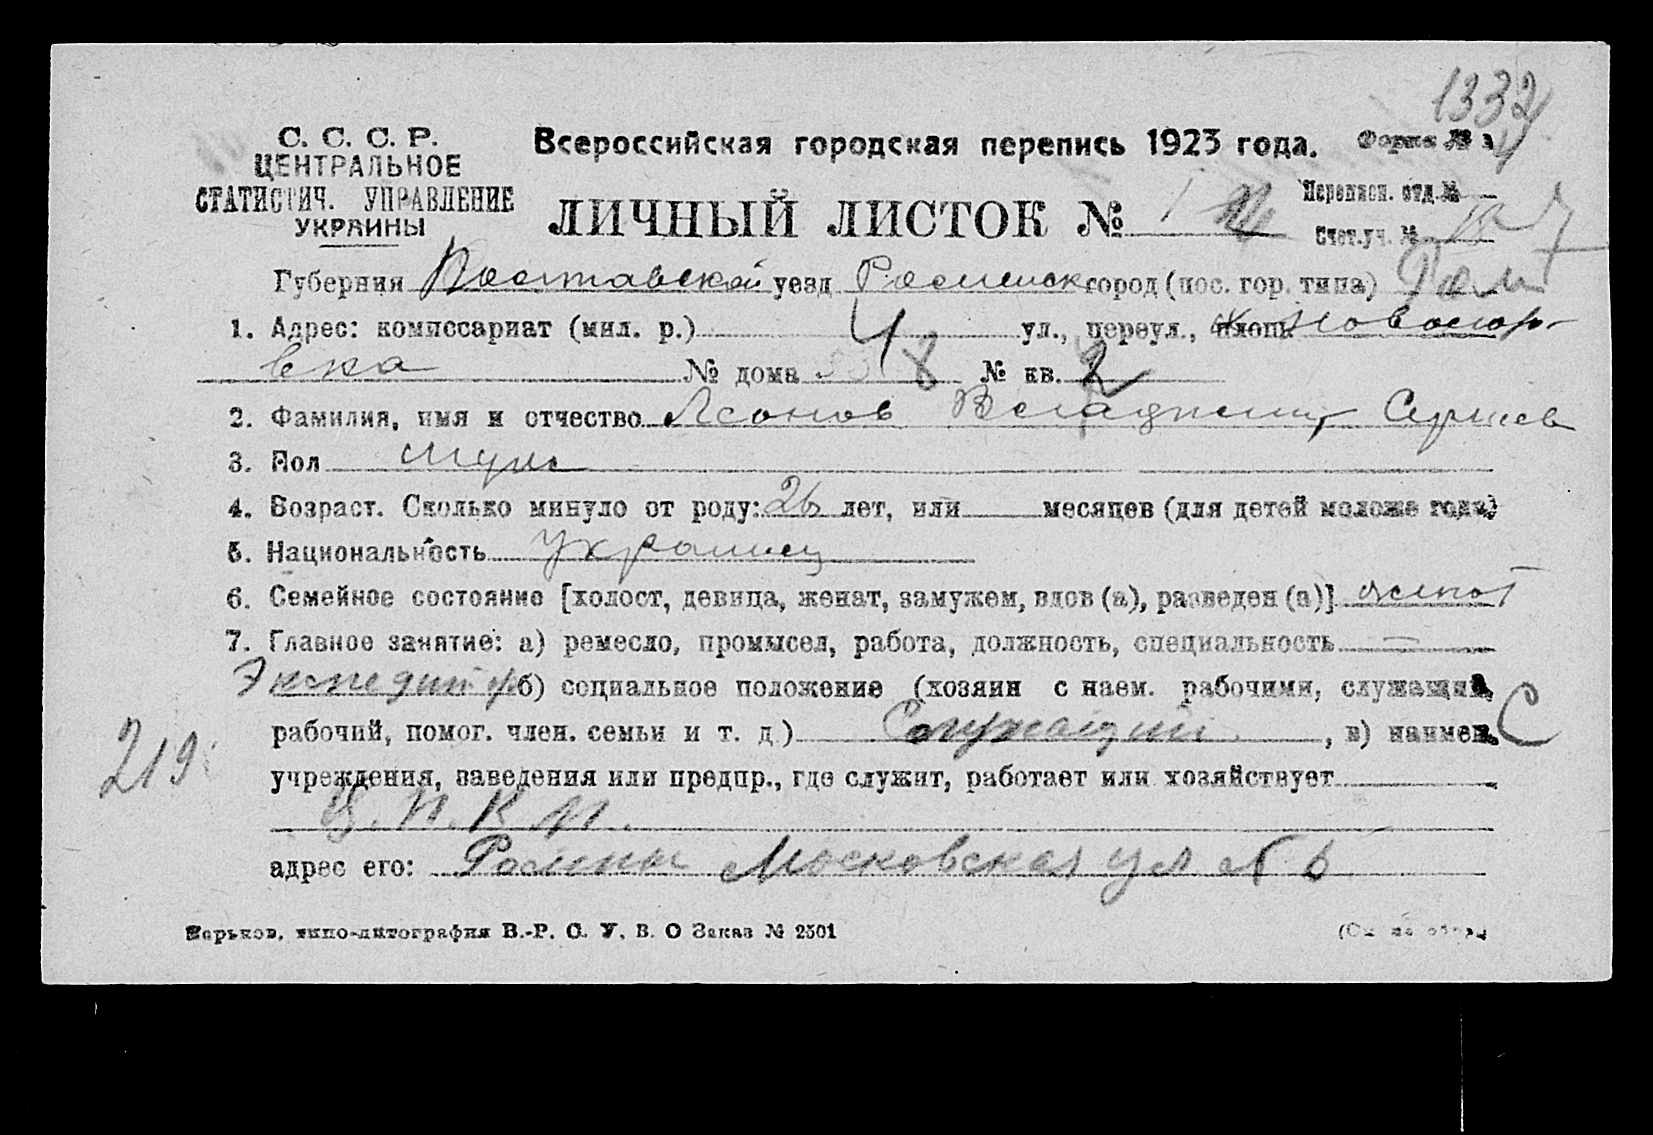 1332
С. С. С. Р.
ЦЕНТРАЛЬНОЕ
СТАТИСТИЧ. УПРАВЛЕНИЕ
УКРАИНЫ
Всероссийская городская перепись 1923 года. Форма №
ЛИЧНЫЙ ЛИСТОК №
Переписн. отд. №
Счет. уч. № 7
Губерния Полтавской уезд Роменск город (пос. гор. типа)
1. Адрес: комиссариат (мил. р.) 4 ул., переул., площ.
вка № дома 8 № кв. 2
2. Фамилия, имя и отчество Леонов Владимир Сергеев
3. Пол муж
4. Возраст. Сколько минуло от роду: 26 лет, или месяцев (для детей моложе года)
5. Национальность украинец
6. Семейное состояние [холост, девица, женат, замужем, вдов (а), разведен (а)] женат
7. Главное занятие: а) ремесло, промысел, работа, должность, специальность
Экспедитор б) социальное положение (хозяин с наем. рабочими, служащий,
рабочий, помог. член. семьи и т. д.) Служащий, в) наимен. С
219
учреждения, заведения или предпр., где служит, работает или хозяйствует
адрес его: Ромны Московская ул № 6
Харьков, типо-литография В.-Р. С. У. В. О Заказ № 2501
(См на обор.)